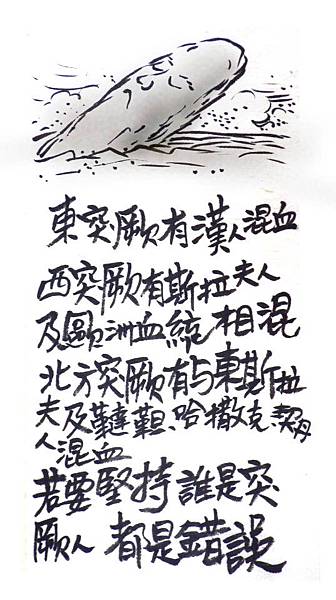 東突厥有漢人混血
西突厥有斯拉夫人
及歐洲血統相混
北方突厥有与東斯拉
夫及韃靼、哈撒克、契丹
人混血
若要堅持誰是突
厥人都是錯誤